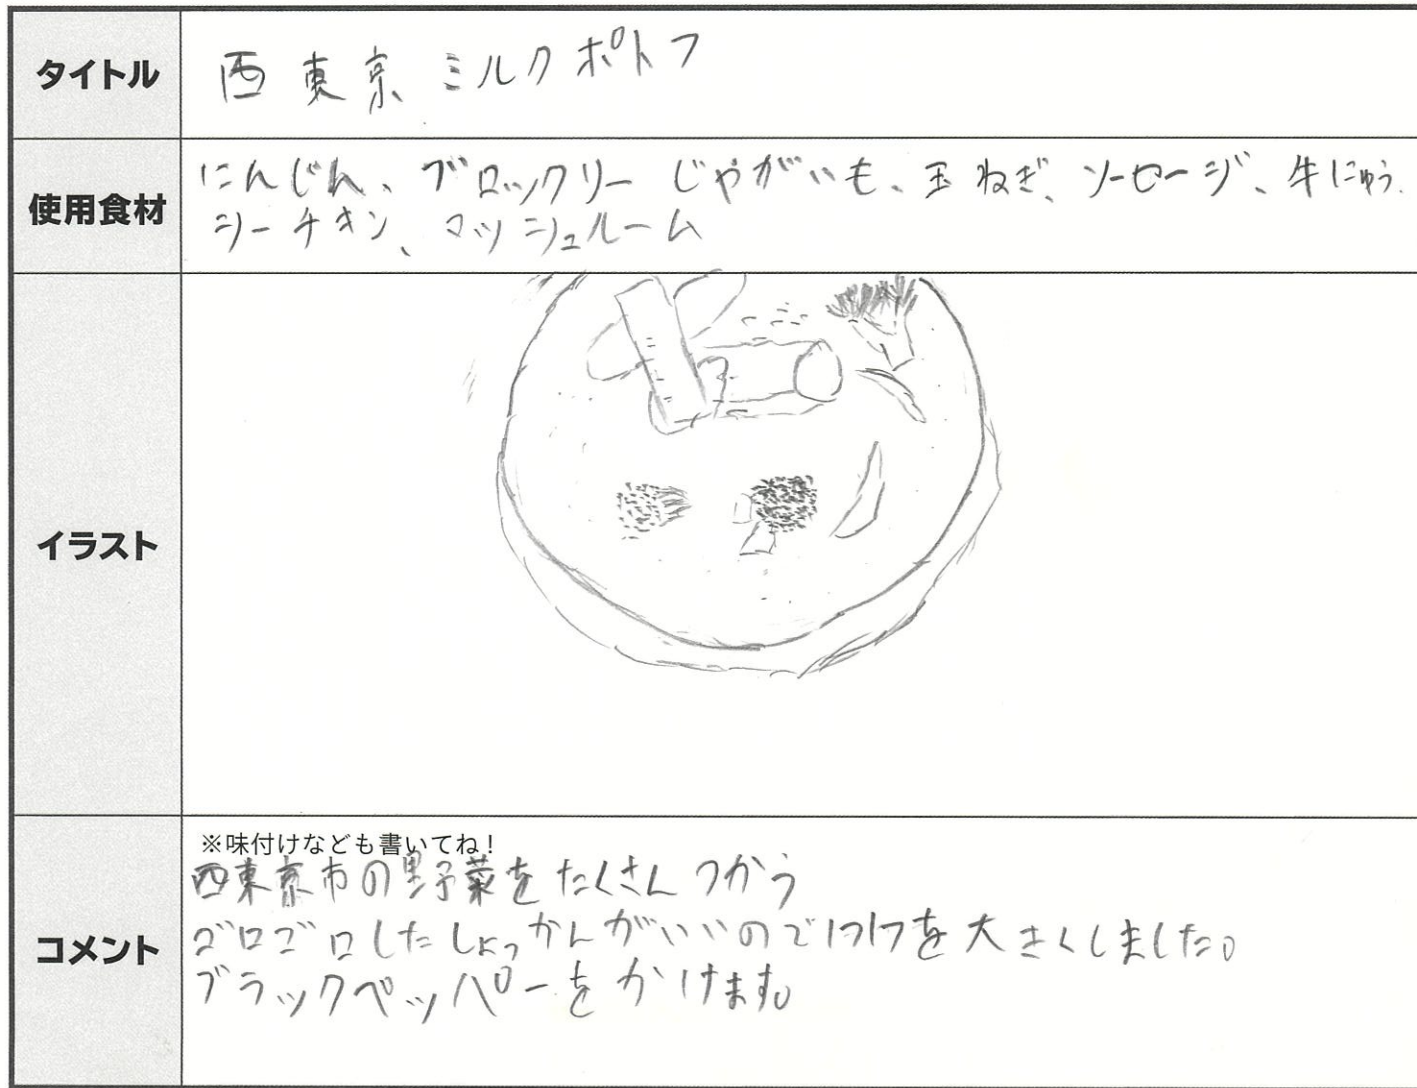 タイトル
西東京ミルクポトフ
使用食材
にんじん、ブロッックリー じゃがいも、玉ねぎ、ソーセージ、牛にゅう、
シーチキン、マッシュルーム
イラスト
コメント
※味付けなども書いてね！
西東京市の野菜をたくさんつかう
ゴロゴロしたしょっかんがいいので を大きくしました。
ブラックペッパーをかけます。